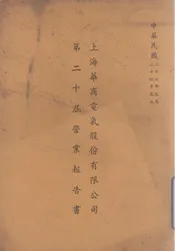 中華民國
上海華商電氣股份有限公司
第二十屆營業報告書